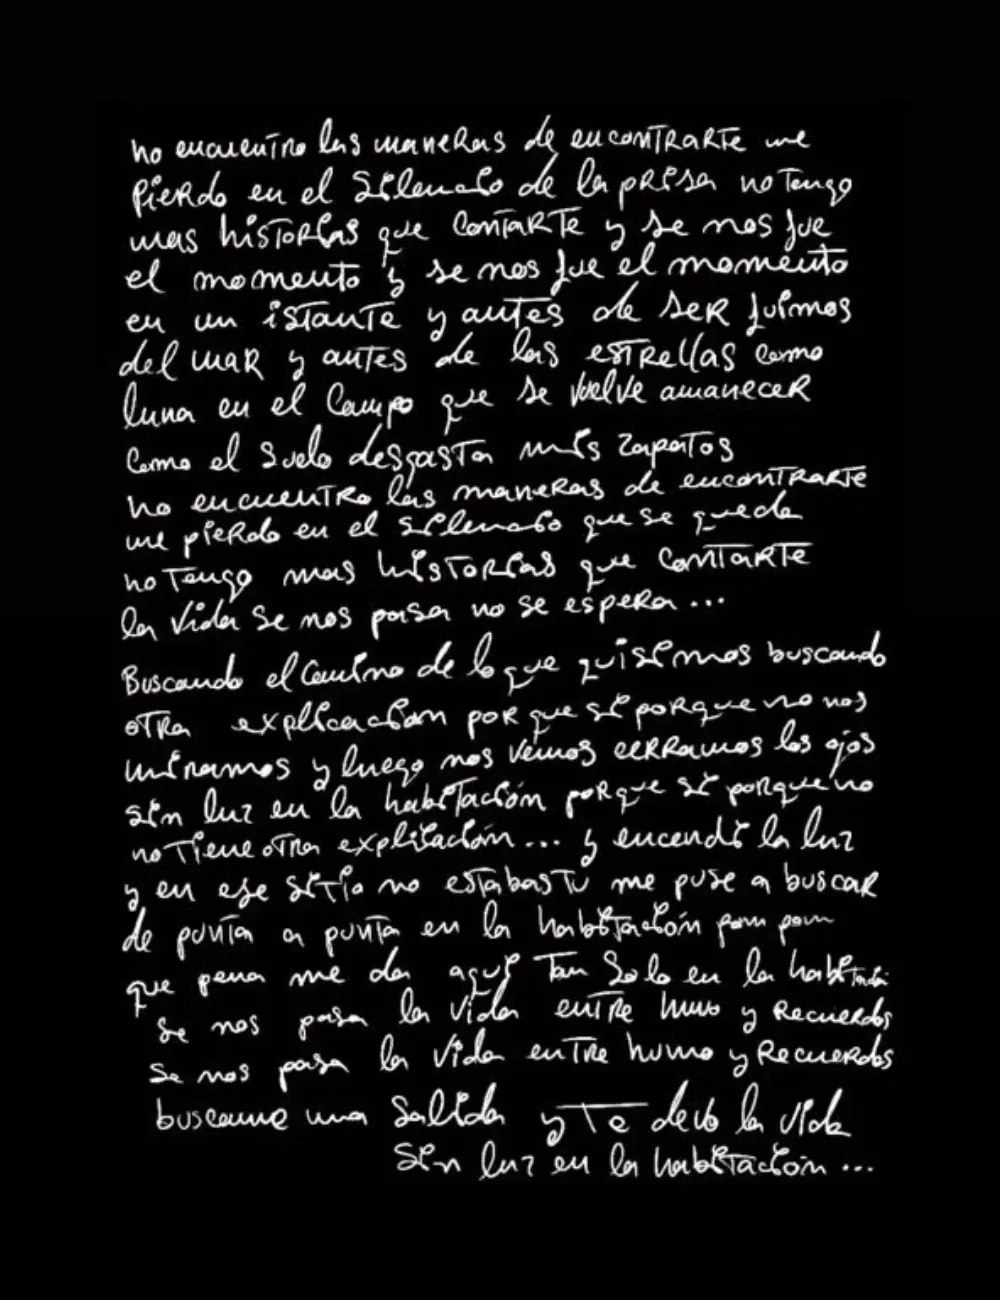 no encuentro las maneras de encontrarte me
pierdo en el silencio de la prisa no tengo
mas historias que contarte y se nos fue
el momento y se nos fue el momento
en un istante y antes de ser fuimos
del mar y antes de las estrellas como
luna en el campo que se vuelve amanecer
como el suelo desgasta mis zapatos
no encuentro las maneras de encontrarte
me pierdo en el silencio que se queda
no tengo mas historias que contarte
la vida se nos pasa no se espera...
Buscando el camino de lo que quisimos buscando
otra explicacion porque si porque no nos
miramos y luego nos vemos cerramos los ojos
sin luz en la habitación porque si porque no
no tiene otra explicación... y encendí la luz
y en ese sitio no estabas tu me puse a buscar
de punta a punta en la habitación pam pam
que pena me da aquí tan solo en la habitación
se nos pasa la vida entre humo y recuerdos
se nos pasa la vida entre humo y recuerdos
buscame una salida y te debo la vida
sin luz en la habitación...